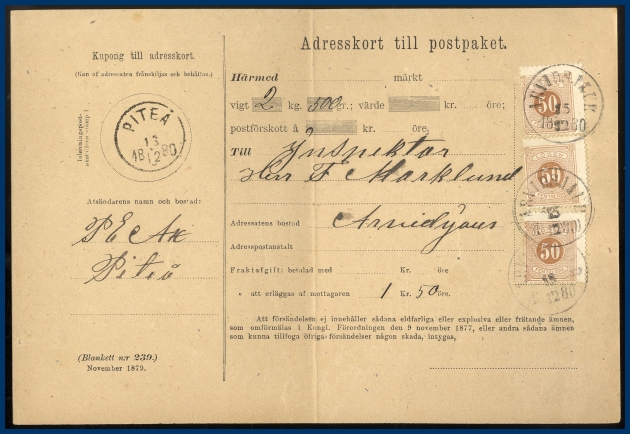 Adresskort till postpaket.
Kupong till adresskort.
(Kan af adressaten frånskiljas och behållas.)
PITEÅ
13
18 12 80
Afsändarens namn och bostad:
Piteå
(Blankett n:r 239.)
November 1879.
Härmed märkt
vigt 2 kg. 500 gr.; värde kr. öre;
postförskott å kr. öre;
Till Inspektor
Herr F Marklund
Adressatens bostad Arvidsjaur
Adresspostanstalt
Fraktafgift: betalad med Kr. öre
„ att erläggas af mottagaren 1 Kr. 50 öre.
Att försändelsen ej innehåller sådana eldfarliga eller explosiva eller frätande ämnen,
som omförmälas i Kongl. Förordningen den 9 november 1877, eller andra sådana ämnen
som kunna tillfoga öfriga försändelser någon skada, intygas,
50
15
18 12 80
50
15
50
15
12 80